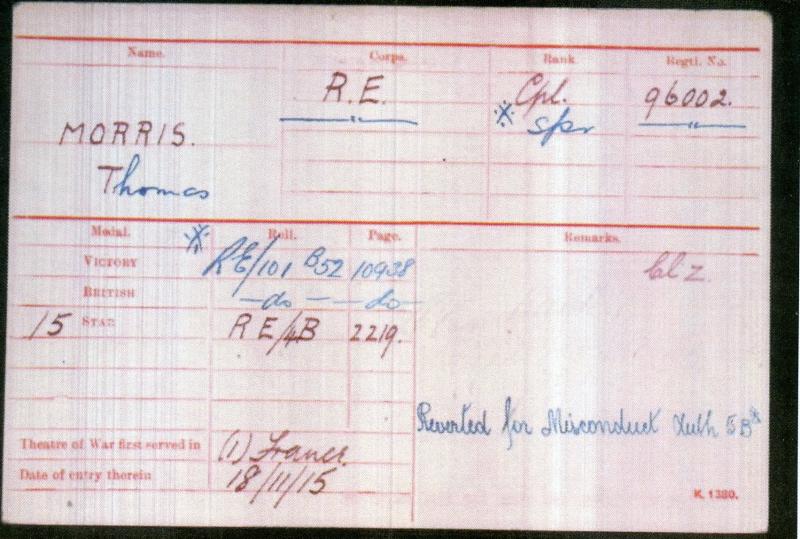 Name. Corps. Rank. Regtl. No.
R.E. Cpl. 96002.
※ Spr "
MORRIS.
Thomas
Medal. ※ Roll. Page. Remarks.
VICTORY RE/101 B52 10938 Cl Z.
BRITISH —do— —do—
15 STAR RE/4B 2219.
Reverted for Misconduct Auth 5B
Theatre of War first served in (1) France.
Date of entry therein 18/11/15
K. 1380.